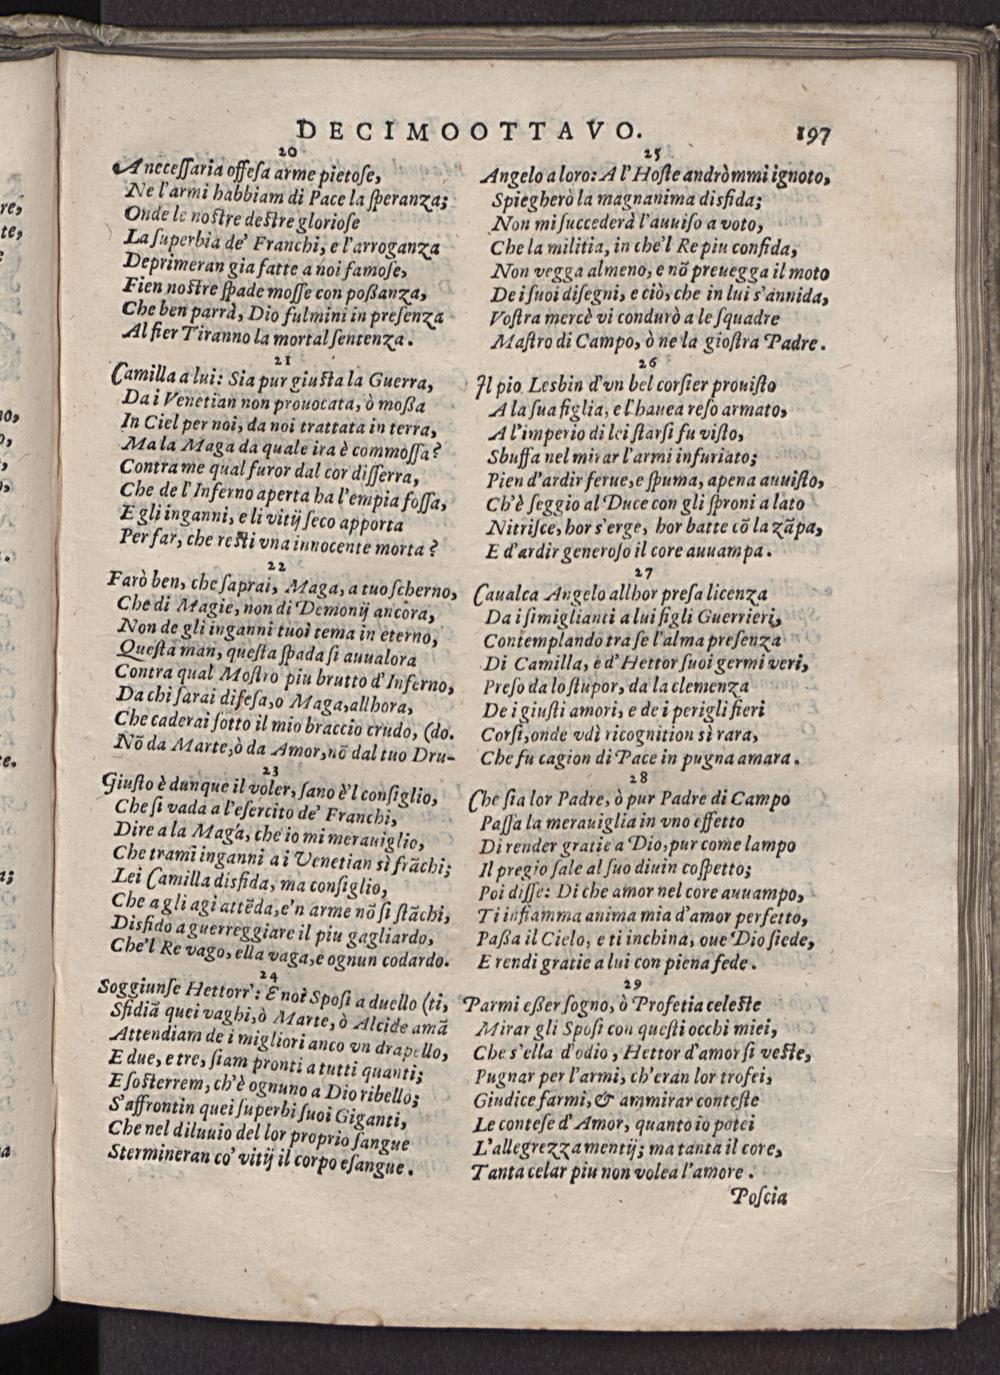 DECIMOOTTAVO. 197
20
A necessaria offesa arme pietose,
Ne l'armi habbiam di Pace la speranza;
Onde le nostre destre gloriose
La superbia de' Franchi, e l'arroganza
Deprimeran gia fatte a noi famose,
Fien nostre spade mosse con possanza,
Che ben parrà, Dio fulmini in presenza
Al fier Tiranno la mortal sentenza.
21
Camilla a lui: Sia pur giusta la Guerra,
Da i Venetian non prouocata, ò mossa
In Ciel per noi, da noi trattata in terra,
Ma la Maga da quale ira è commossa?
Contra me qual furor dal cor disserra,
Che de l'Inferno aperta ha l'empia fossa,
E gli inganni, e li vitij seco apporta
Per far, che resti vna innocente morta?
22
Farò ben, che saprai, Maga, a tuo scherno,
Che di Magie, non di Demonij ancora,
Non de gli inganni tuoi tema in eterno,
Questa man, questa spada si auualora
Contra qual Mostro piu brutto d'Inferno,
Da chi sarai difesa, o Maga, allhora,
Che caderai sotto il mio braccio crudo, (do.
Nõ da Marte, ò da Amor, nõ dal tuo Dru-
23
Giusto è dunque il voler, sano è'l consiglio,
Che si vada a l'esercito de' Franchi,
Dire a la Maga, che io mi merauiglio,
Che trami inganni a i Venetian sì frãchi;
Lei Camilla disfida, ma consiglio,
Che a gli agi attẽda, e'n arme nõ si stãchi,
Disfido a guerreggiare il piu gagliardo,
Che'l Re vago, ella vaga, e ognun codardo.
24
Soggiunse Hettorr': E noi Sposi a duello (ti,
Sfidiã quei vaghi, ò Marte, ò Alcide amã
Attendiam de i migliori anco vn drapello,
E due, e tre, siam pronti a tutti quanti;
E sosterrem, ch'è ognuno a Dio ribello;
S'affrontin quei superbi suoi Giganti,
Che nel diluuio del lor proprio sangue
Stermineran co' vitij il corpo esangue.
25
Angelo a loro: A l'Hoste andròmmi ignoto,
Spiegherò la magnanima disfida;
Non mi succederà l'auuiso a voto,
Che la militia, in che'l Re piu confida,
Non vegga almeno, e nõ preuegga il moto
De i suoi disegni, e ciò, che in lui s'annida,
Vostra mercè vi condurò a le squadre
Mastro di Campo, ò ne la giostra Padre.
26
Il pio Lesbin d'vn bel corsier prouisto
A la sua figlia, e l'hauea reso armato,
A l'imperio di lei starsi fu visto,
Sbuffa nel mirar l'armi infuriato;
Pien d'ardir ferue, e spuma, apena auuisto,
Ch'è seggio al Duce con gli sproni a lato
Nitrisce, hor s'erge, hor batte cõ la zãpa,
E d'ardir generoso il core auuampa.
27
Caualca Angelo allhor presa licenza
Da i simiglianti a lui figli Guerrieri,
Contemplando tra se l'alma presenza
Di Camilla, e d'Hettor suoi germi veri,
Preso da lo stupor, da la clemenza
De i giusti amori, e de i perigli fieri
Corsi, onde vdì ricognition sì rara,
Che fu cagion di Pace in pugna amara.
28
Che sia lor Padre, ò pur Padre di Campo
Passa la merauiglia in vno effetto
Di render gratie a Dio, pur come lampo
Il pregio sale al suo diuin cospetto;
Poi disse: Di che amor nel core auuampo,
Ti infiamma anima mia d'amor perfetto,
Passa il Cielo, e ti inchina, oue Dio siede,
E rendi gratie a lui con piena fede.
29
Parmi esser sogno, ò Profetia celeste
Mirar gli Sposi con questi occhi miei,
Che s'ella d'odio, Hettor d'amor si veste,
Pugnar per l'armi, ch'eran lor trofei,
Giudice farmi, & ammirar conteste
Le contese d'Amor, quanto io potei
L'allegrezza mentij; ma tanta il core,
Tanta celar piu non volea l'amore.
Poscia